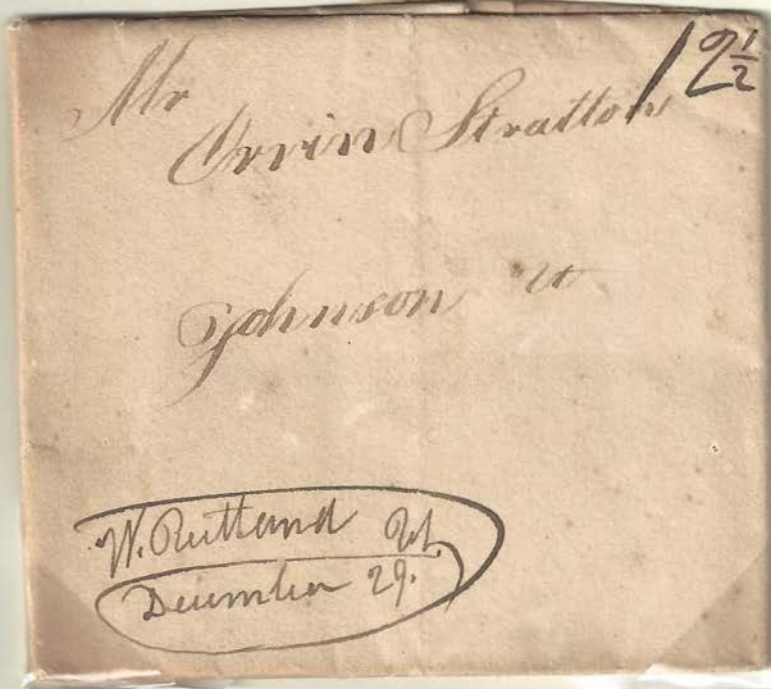 12½
Mr
Orvin Stratton
Johnson Vt
W. Rutland Vt.
December 29.